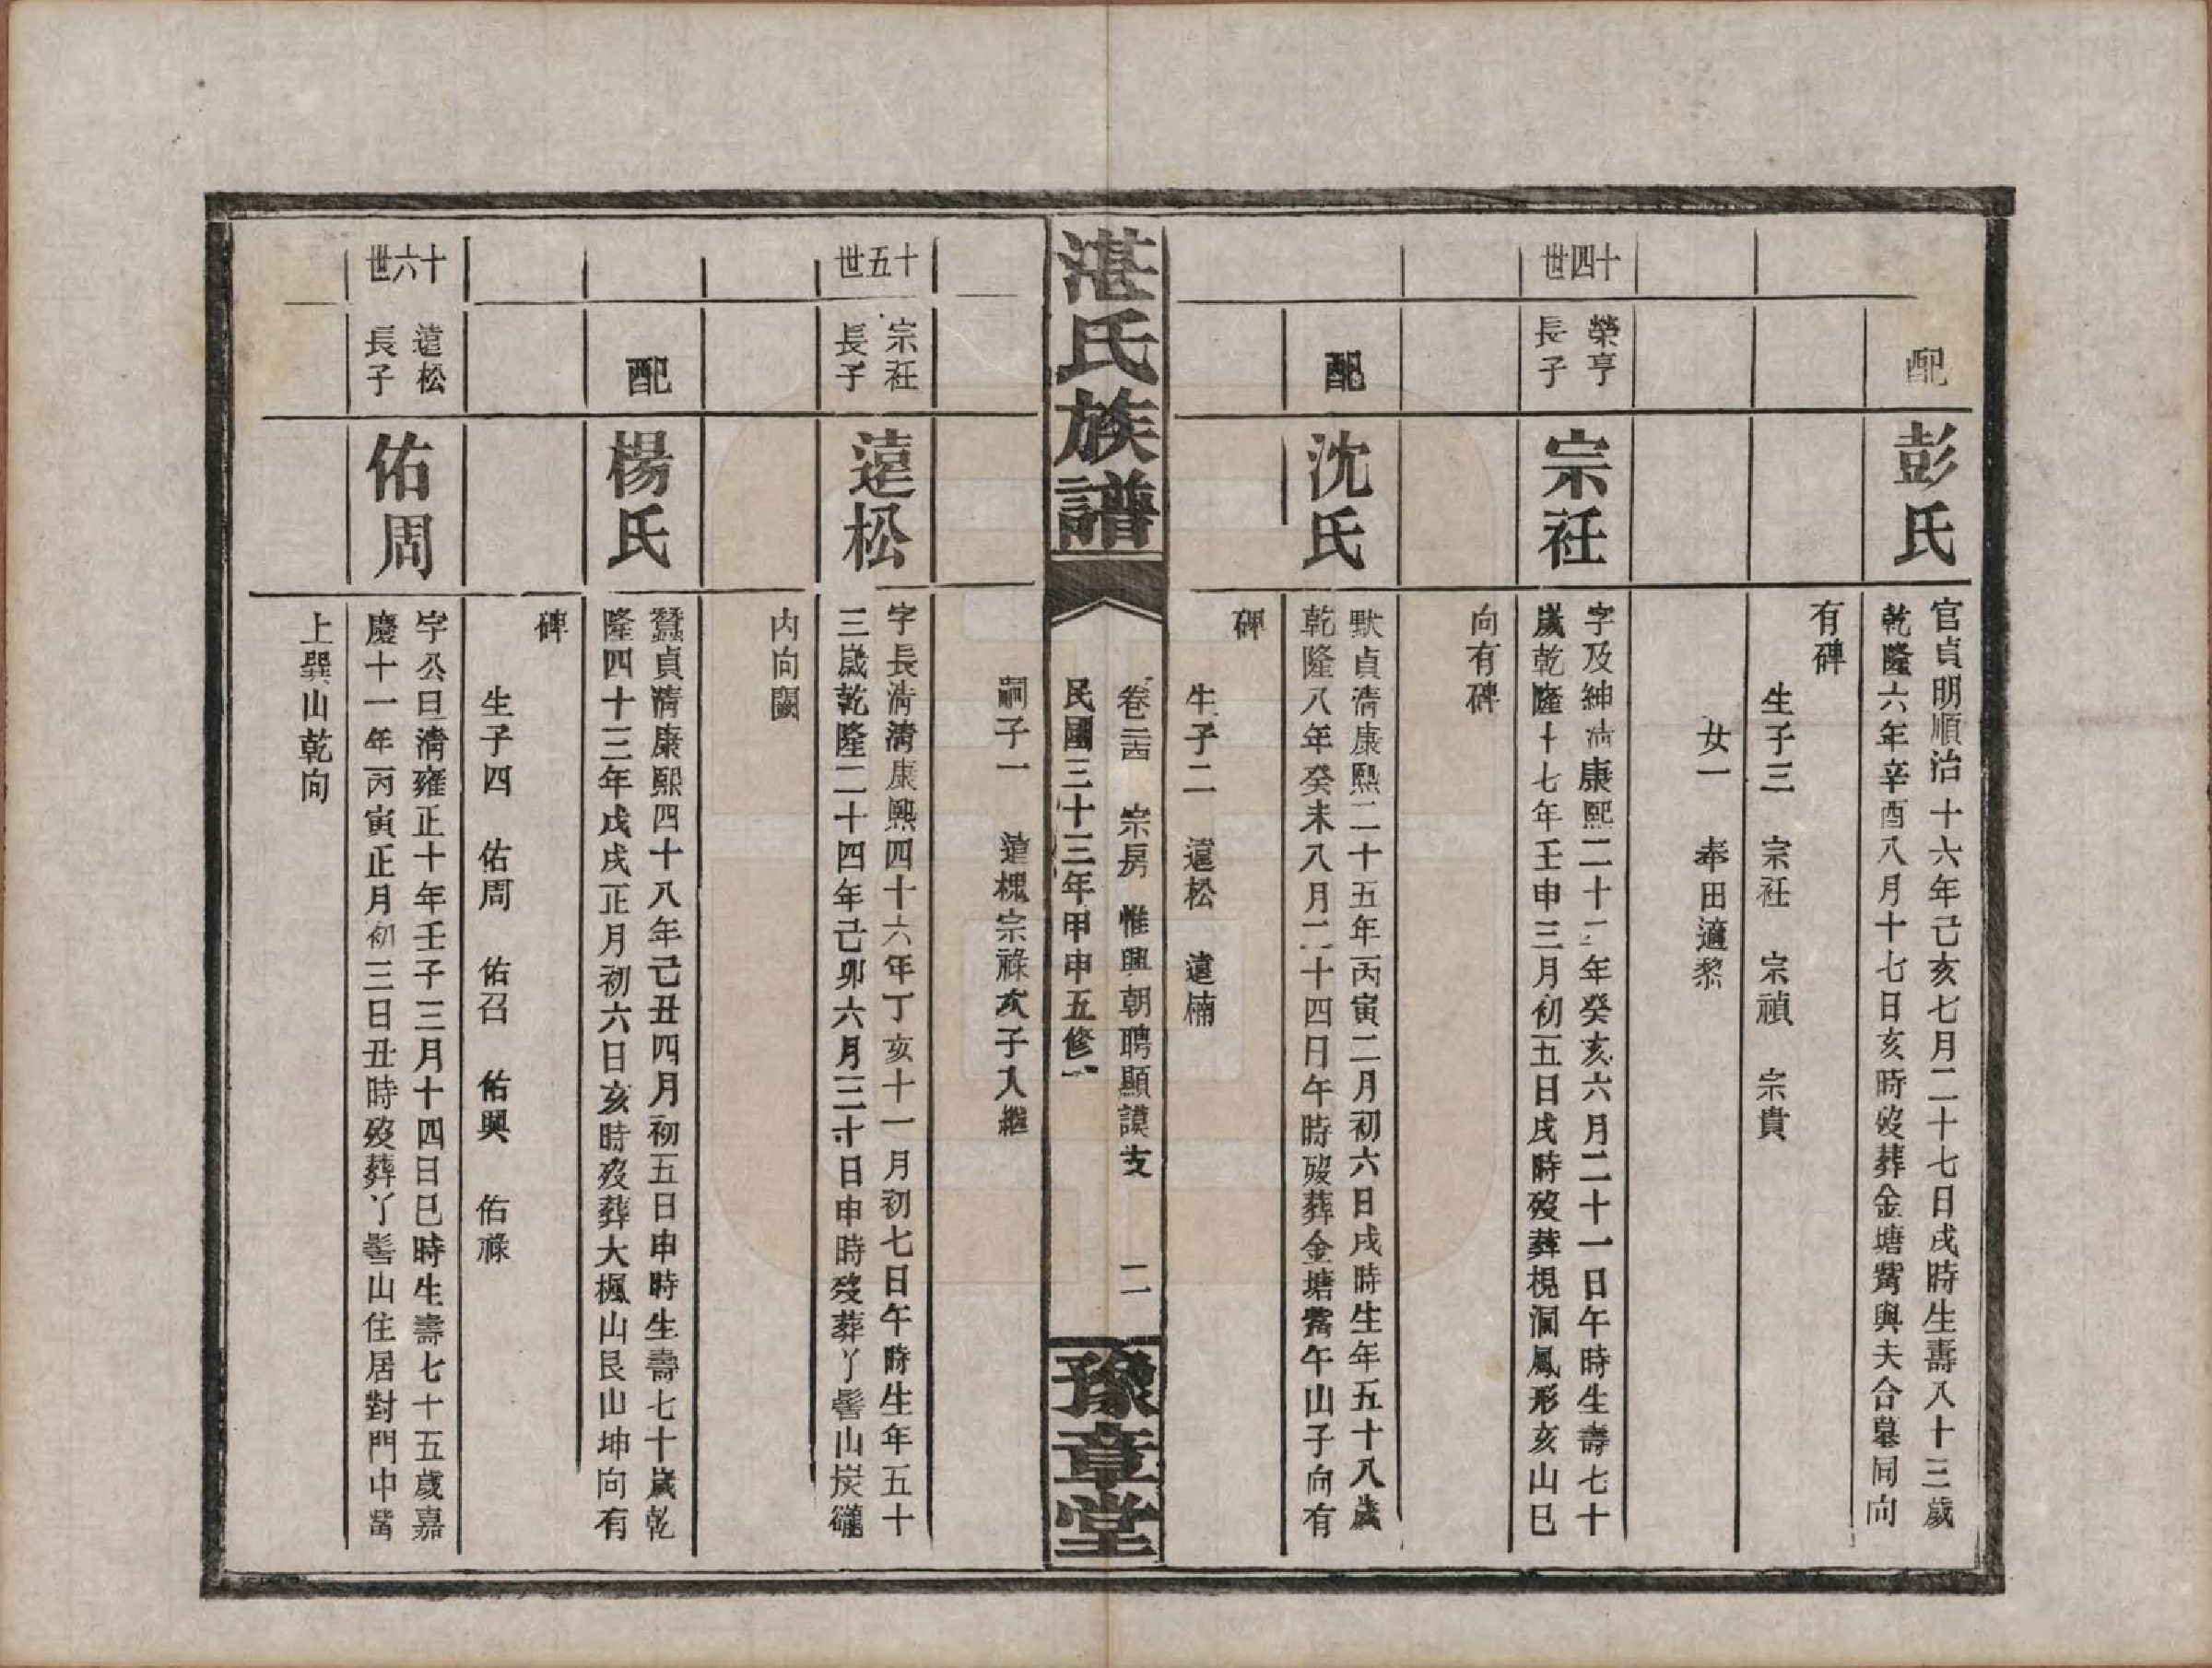 配
彭氏
官貞明順治十六年己亥七月二十七日戌時生壽八十三歲
乾隆六年辛酉八月十七日亥時歿葬金塘觜與夫合墓同向
有碑
生子三　宗衽　宗禎　宗貴
女一　奉田適黎
十四世
榮亨
長子
宗衽
字及紳清康熙二十二年癸亥六月二十一日午時生壽七十
歲乾隆十七年壬申三月初五日戌時歿葬梘洞鳳形亥山巳
向有碑
配
沈氏
默貞清康熙二十五年丙寅二月初六日戌時生年五十八歲
乾隆八年癸未八月二十四日午時歿葬金塘觜午山子向有
碑
生子二　遠松　遠楠
湛氏族譜
卷二　宗房　惟興朝聘顯謨支　二
民國三十三年甲申五修
豫章堂
嗣子一　遠槐宗祿次子入繼
十五世
宗衽
長子
遠松
字長清清康熙四十六年丁亥十一月初七日午時生年五十
三歲乾隆二十四年己卯六月三十日申時歿葬丫髻山炭
內向闕
配
楊氏
蠶貞清康熙四十八年己丑四月初五日申時生壽七十歲乾
隆四十三年戊戌正月初六日亥時歿葬大楓山艮山坤向有
碑
生子四　佑周　佑召　佑興　佑祿
十六世
遠松
長子
佑周
字公旦清雍正十年壬子三月十四日巳時生壽七十五歲嘉
慶十一年丙寅正月初三日丑時歿葬丫髻山住居對門中觜
上巽山乾向